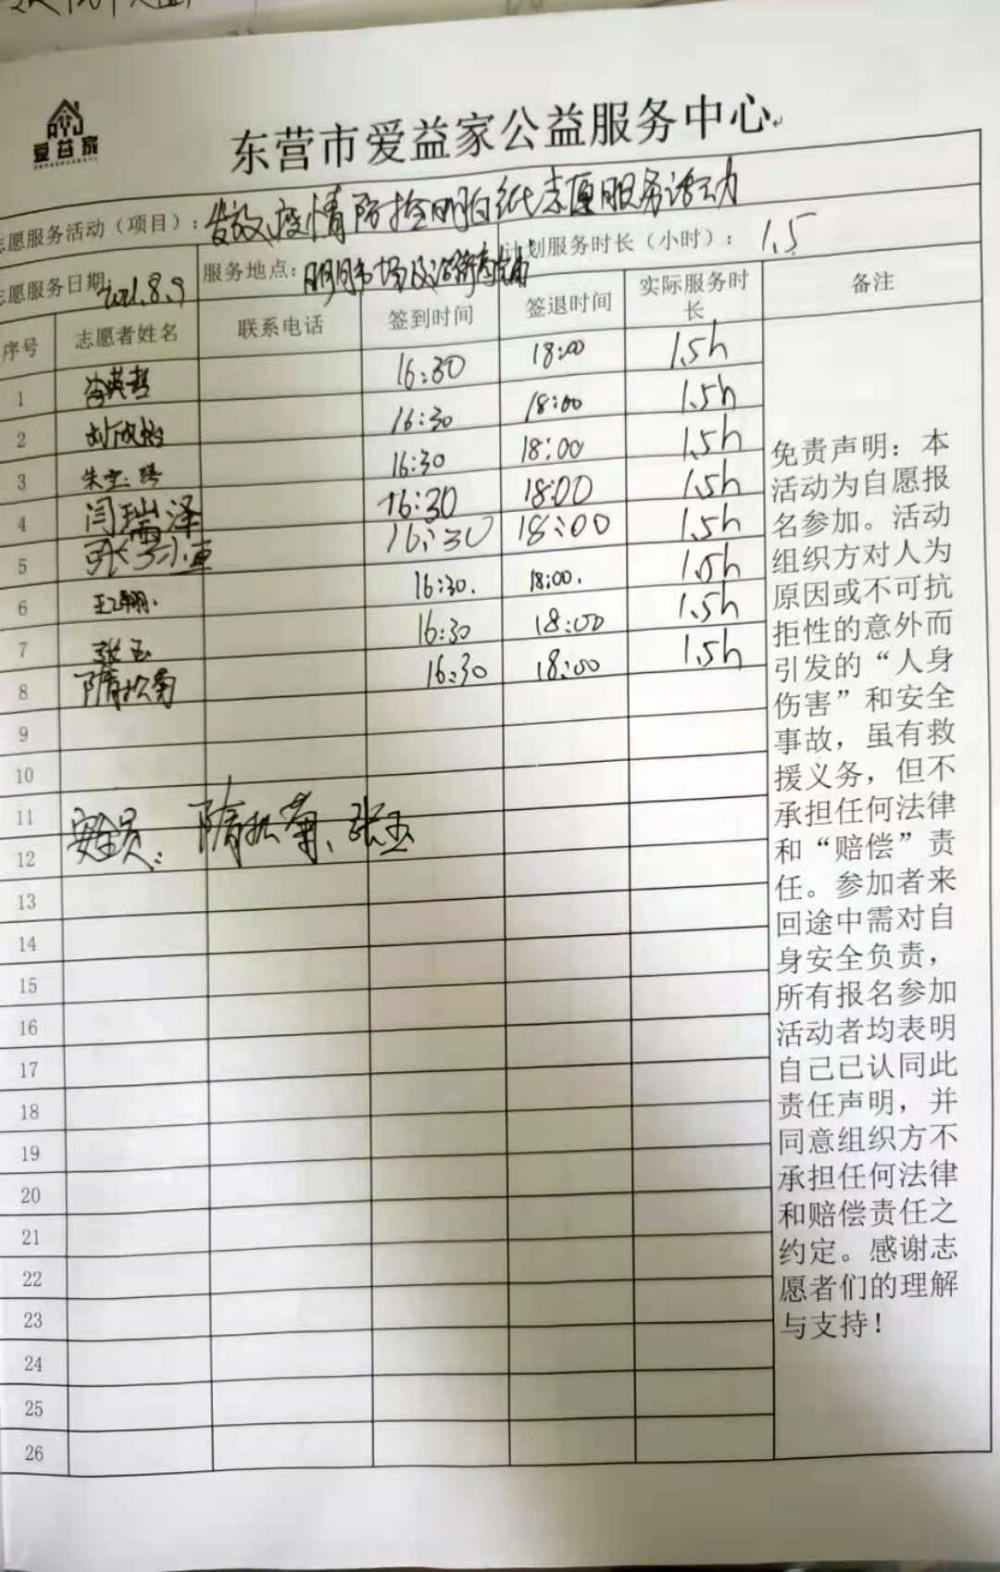 爱益家
东营市爱益家公益服务中心
志愿服务活动（项目）：发放疫情防控明白纸志愿服务活动
志愿服务日期：2021.8.9 服务地点：明月市场及沿街商铺 计划服务时长（小时）：1.5
序号 志愿者姓名 联系电话 签到时间 签退时间 实际服务时长 备注
1 16:30 18:00 1.5h
2 刘欣怡 16:30 18:00 1.5h
3 16:30 18:00 1.5h
4 闫瑞泽 16:30 18:00 1.5h
5 16:30 18:00 1.5h
6 16:30. 18:00. 1.5h
7 张玉 16:30 18:00 1.5h
8 隋松菊 16:30 18:00 1.5h
9
10
11
12
安全员：隋松菊、张玉
13
14
15
16
17
18
19
20
21
22
23
24
25
26
免责声明：本
活动为自愿报
名参加。活动
组织方对人为
原因或不可抗
拒性的意外而
引发的“人身
伤害”和安全
事故，虽有救
援义务，但不
承担任何法律
和“赔偿”责
任。参加者来
回途中需对自
身安全负责，
所有报名参加
活动者均表明
自己已认同此
责任声明，并
同意组织方不
承担任何法律
和赔偿责任之
约定。感谢志
愿者们的理解
与支持！